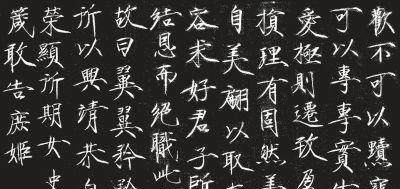 歡不可以黷寵
可以專專實
愛極則遷致盈
損理有固然美
自美翩以取
容求好君子所
結恩而絕職此
故曰翼翼矜矜
所以興靖恭自
榮顯所期女史
箴敢告庶姬